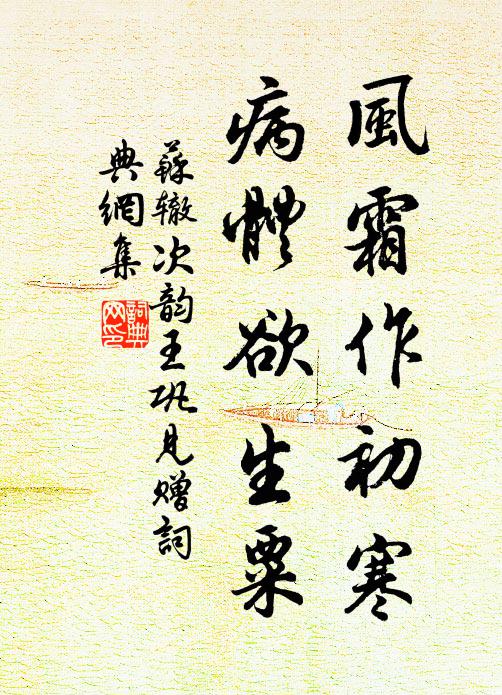 風霜作初寒
病體欲生粟
蘇辙次韵王巩見赠詞
典網集
詞典
网印